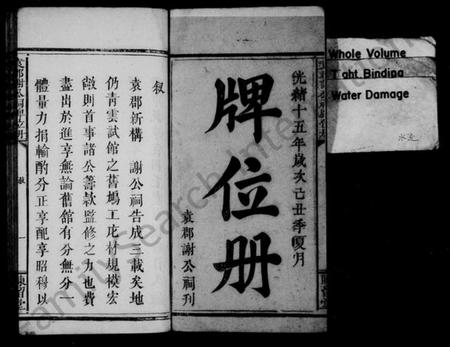 光緒十五年歲次己丑季夏月
牌位册
袁郡謝公祠刋
叙
袁郡新構 謝公祠告成三載矣地
仍青雲試館之舊塲工庀材規模宏
敞則首事諸公籌款監修之力也費
盡出於進享無論舊館有分無分一
體量力捐輸酌分正享配享昭得以
叙
一
Whole Volume
Tight Binding
Water Damage
FamilySearch International